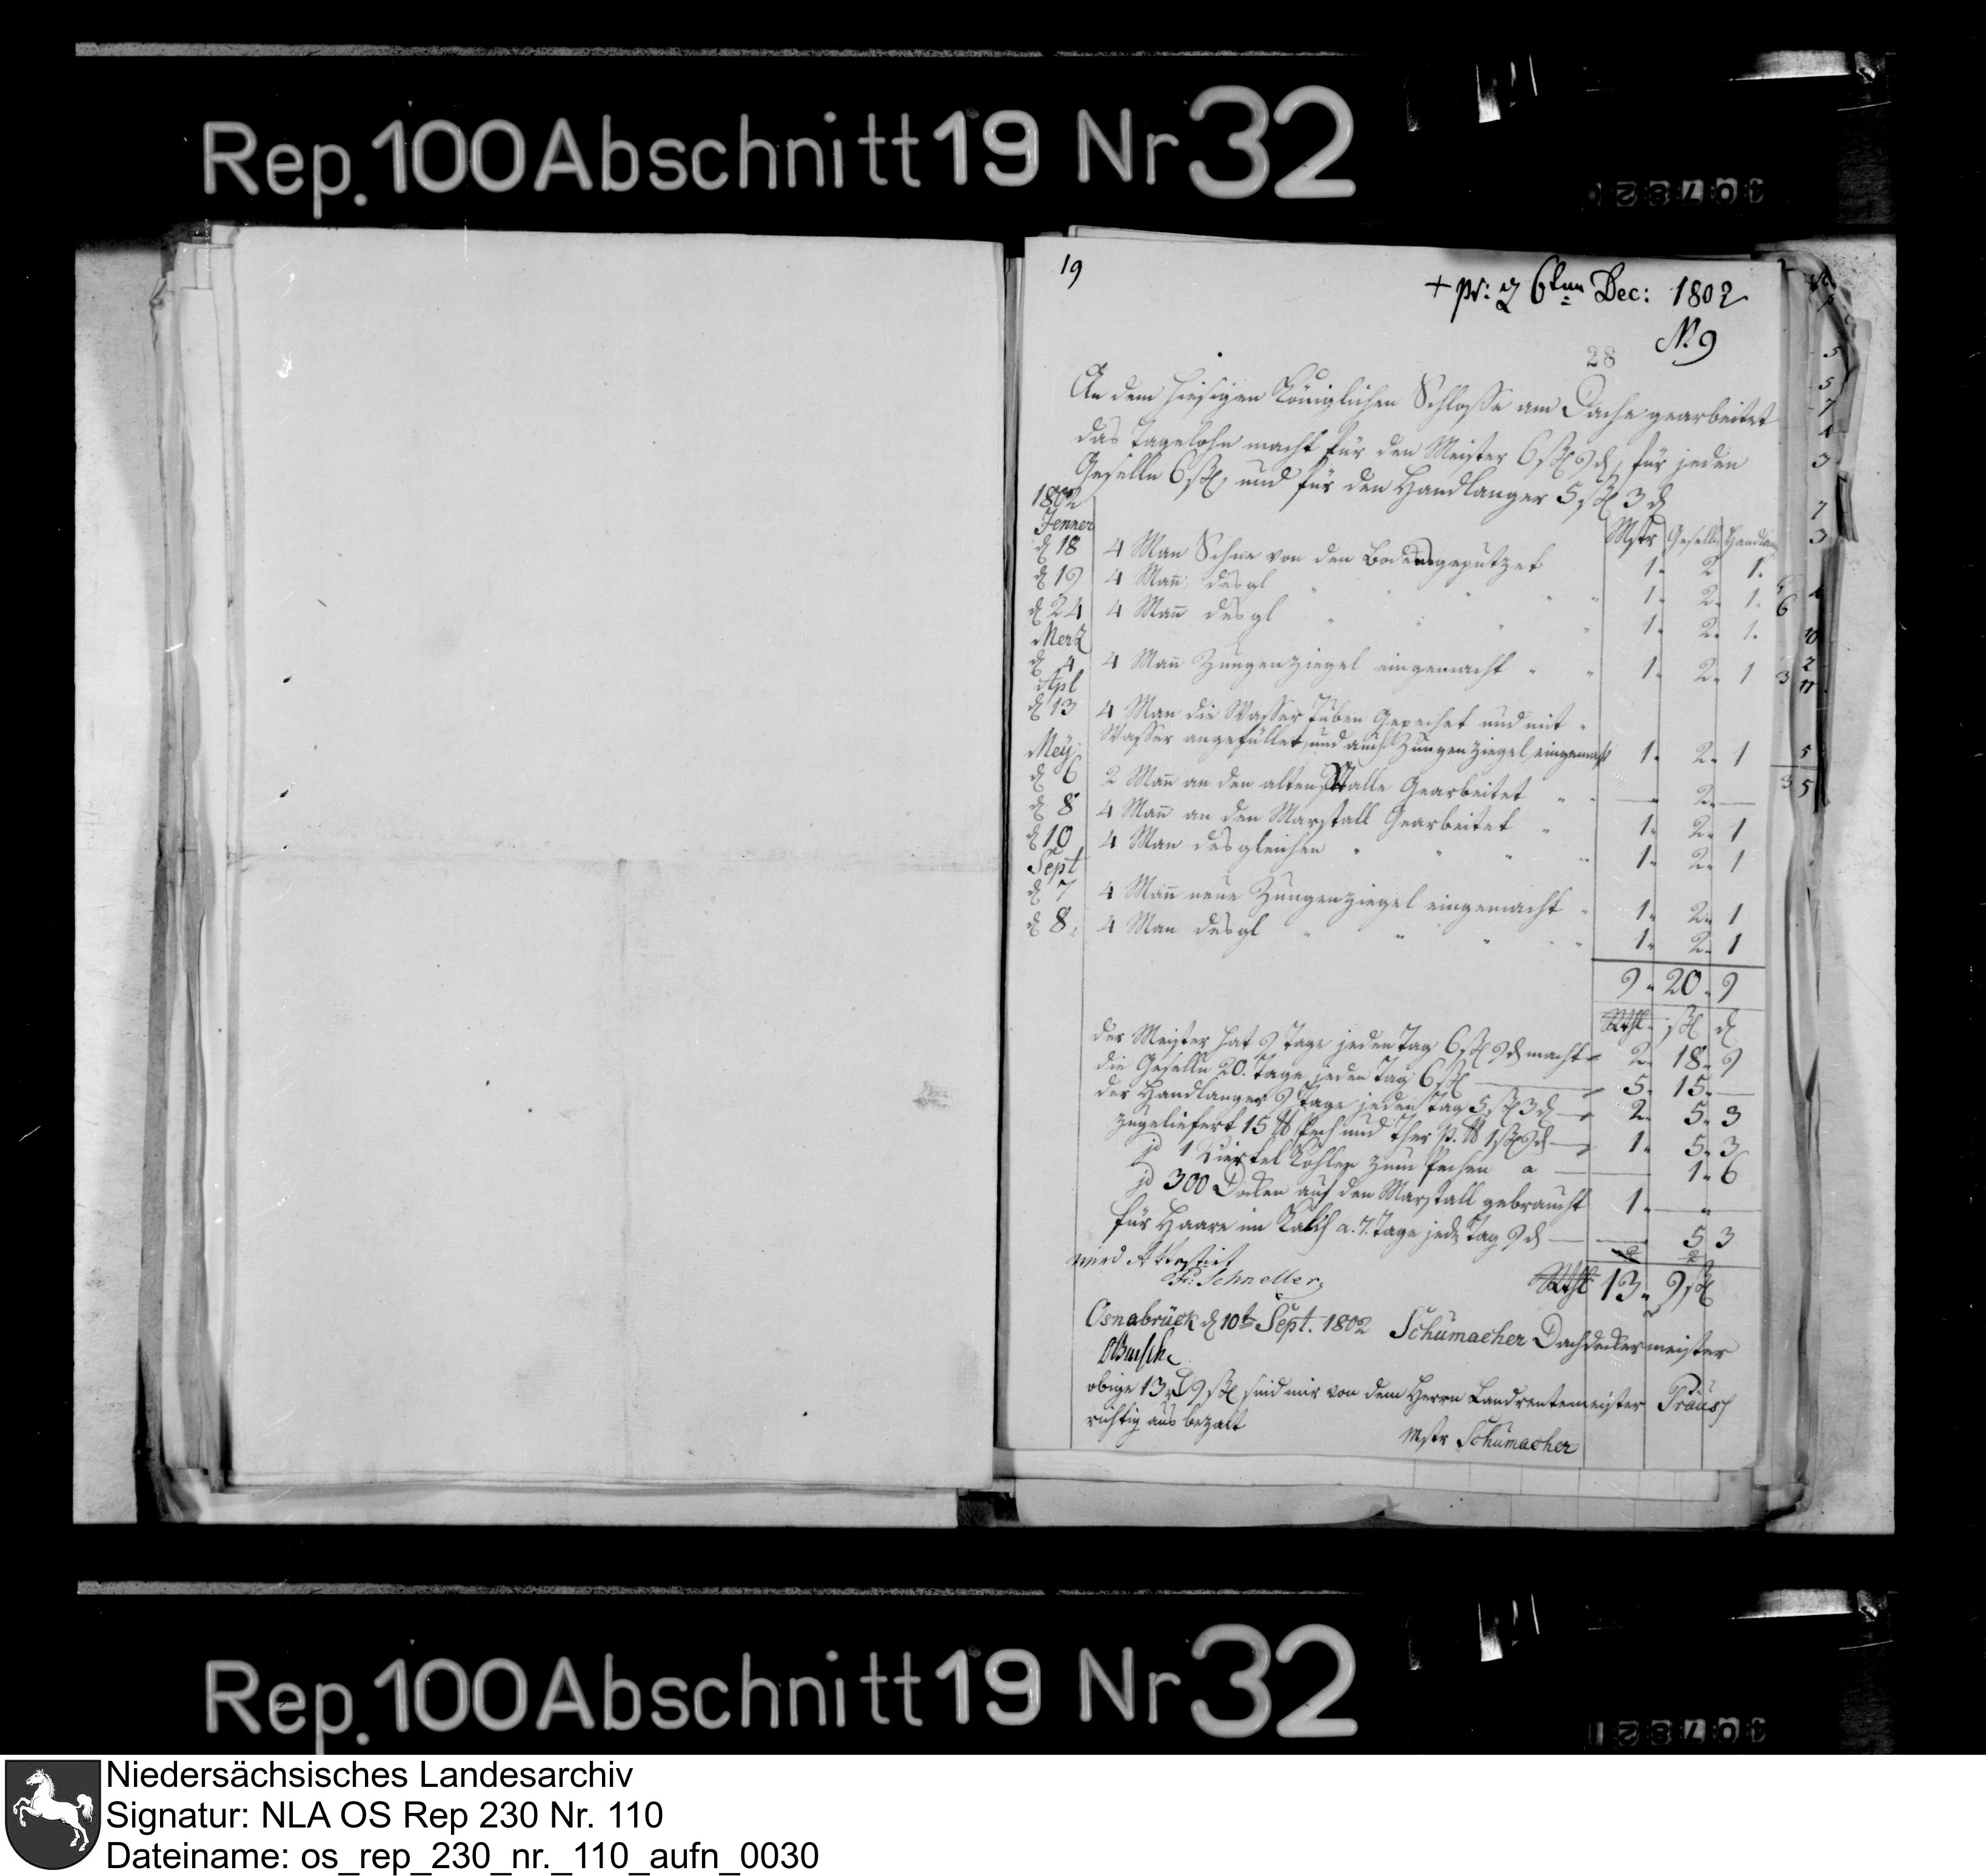 Rep. 100 Abschnitt 19 Nr 32
19
+ pr: d 6ten Dec: 1802
N. 9
28
An dem hiesigen Königlichen Schlosse am Dache gearbeitet
das Tagelohn macht für den Meister 6 ß 9 d, für jeden
Geselln 6 ß, und für den Handlanger 5 ß 3 d
1802
Jenner
Mstr Geselln Handlan
d 18 4 Man Schne von den Bodens geputzet 1 " 2 1.
d 19 4 Mañ: desgl " " " " 1 " 2 " 1.
d 24 4 Mañ desgl " " " " 1 " 2 " 1.
Merz
d 4 4 Mañ Zungenziegel eingemacht " " 1 " 2 " 1
Apl
d 13 4 Man die Wasser Tuben Gepechet und mit "
Wasser angefüllet, und auch Zungenziegel eingemacht 1 " 2 " 1
Mey
d 6 2 Mañ an den alten Stalle Gearbeitet " " — 2 " —
d 8 4 Mañ an den Marstall Gearbeitet " 1 " 2 " 1
d 10 4 Man desgleichen " " " " 1 " 2 " 1
Sept
d 7 4 Mañ neue Zungenziegel eingemacht " 1 " 2 " 1
d 8. 4 Man desgl " " " " 1 " 2 " 1
9 " 20 " 9
Rthl " ß d
der Meister hat 9 Tage jeden Tag 6 ß 9 d macht 2 " 18 " 9
die Geselln 20. Tage jeden Tag 6 ß — 5 " 15 " —
der Handlanger 9 Tage jeden Tag 5 ß 3 d — 2 " 5 " 3
zugeliefert 15 ℔ Pech und Ther p. ℔ 1 ß 9 d — 1 " 5 " 3
jd 1 Viertel Kohlen zum Pechen a — 1 " 6
jd 300 Docken auf den Marstall gebraucht 1 " — " —
für Haare im Kalch a. 7. Tage jedn Tag 9 d — — 5 3
wird Attestirt
Fr: Schneller
Rthl 13 " 9 ß
Osnabrück d 10t Sept. 1802 Schumacher Dachdeckermeister
Busche
obige 13 rt 9 ß sind mir von dem Herrn Landrentemeister
richtig aus bezalt
Mstr Schumacher
Rep. 100 Abschnitt 19 Nr 32
Niedersächsisches Landesarchiv
Signatur: NLA OS Rep 230 Nr. 110
Dateiname: os_rep_230_nr._110_aufn_0030